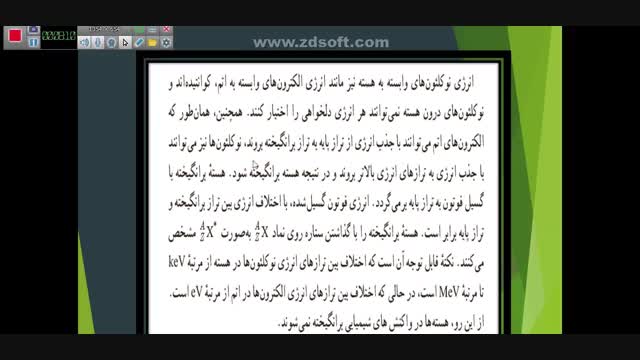 www.zdsoft.com
انرژی نوکلئون‌های وابسته به هسته نیز مانند انرژی الکترون‌های وابسته به اتم، کوانتیده‌اند و
نوکلئون‌های درون هسته نمی‌توانند هر انرژی دلخواهی را اختیار کنند. همچنین، همان‌طور که
الکترون‌های اتم می‌توانند با جذب انرژی از تراز پایه به تراز برانگیخته بروند، نوکلئون‌ها نیز می‌توانند
با جذب انرژی به ترازهای انرژی بالاتر بروند و در نتیجه هسته برانگیخته شود. هستهٔ برانگیخته با
گسیل فوتون به تراز پایه برمی‌گردد. انرژی فوتون گسیل‌شده، با اختلاف انرژی بین تراز برانگیخته و
تراز پایه برابر است. هستهٔ برانگیخته را با گذاشتن ستاره روی نماد ᴬ_ZX به‌صورت ᴬ_ZX* مشخص
می‌کنند. نکتهٔ قابل توجه آن است که اختلاف بین ترازهای انرژی نوکلئون‌ها در هسته از مرتبهٔ keV
تا مرتبهٔ MeV است، در حالی که اختلاف بین ترازهای انرژی الکترون‌ها در اتم از مرتبهٔ eV است.
از این رو، هسته‌ها در واکنش های شیمیایی برانگیخته نمی‌شوند.